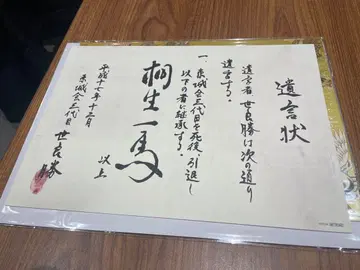 遺言状
遺言者、世良勝は次の通り
遺言する。
一、東城会三代目を死後、引退し
以下の者に継承する。
桐生一馬
以上
平成十七年十二月
東城会三代目 世良勝